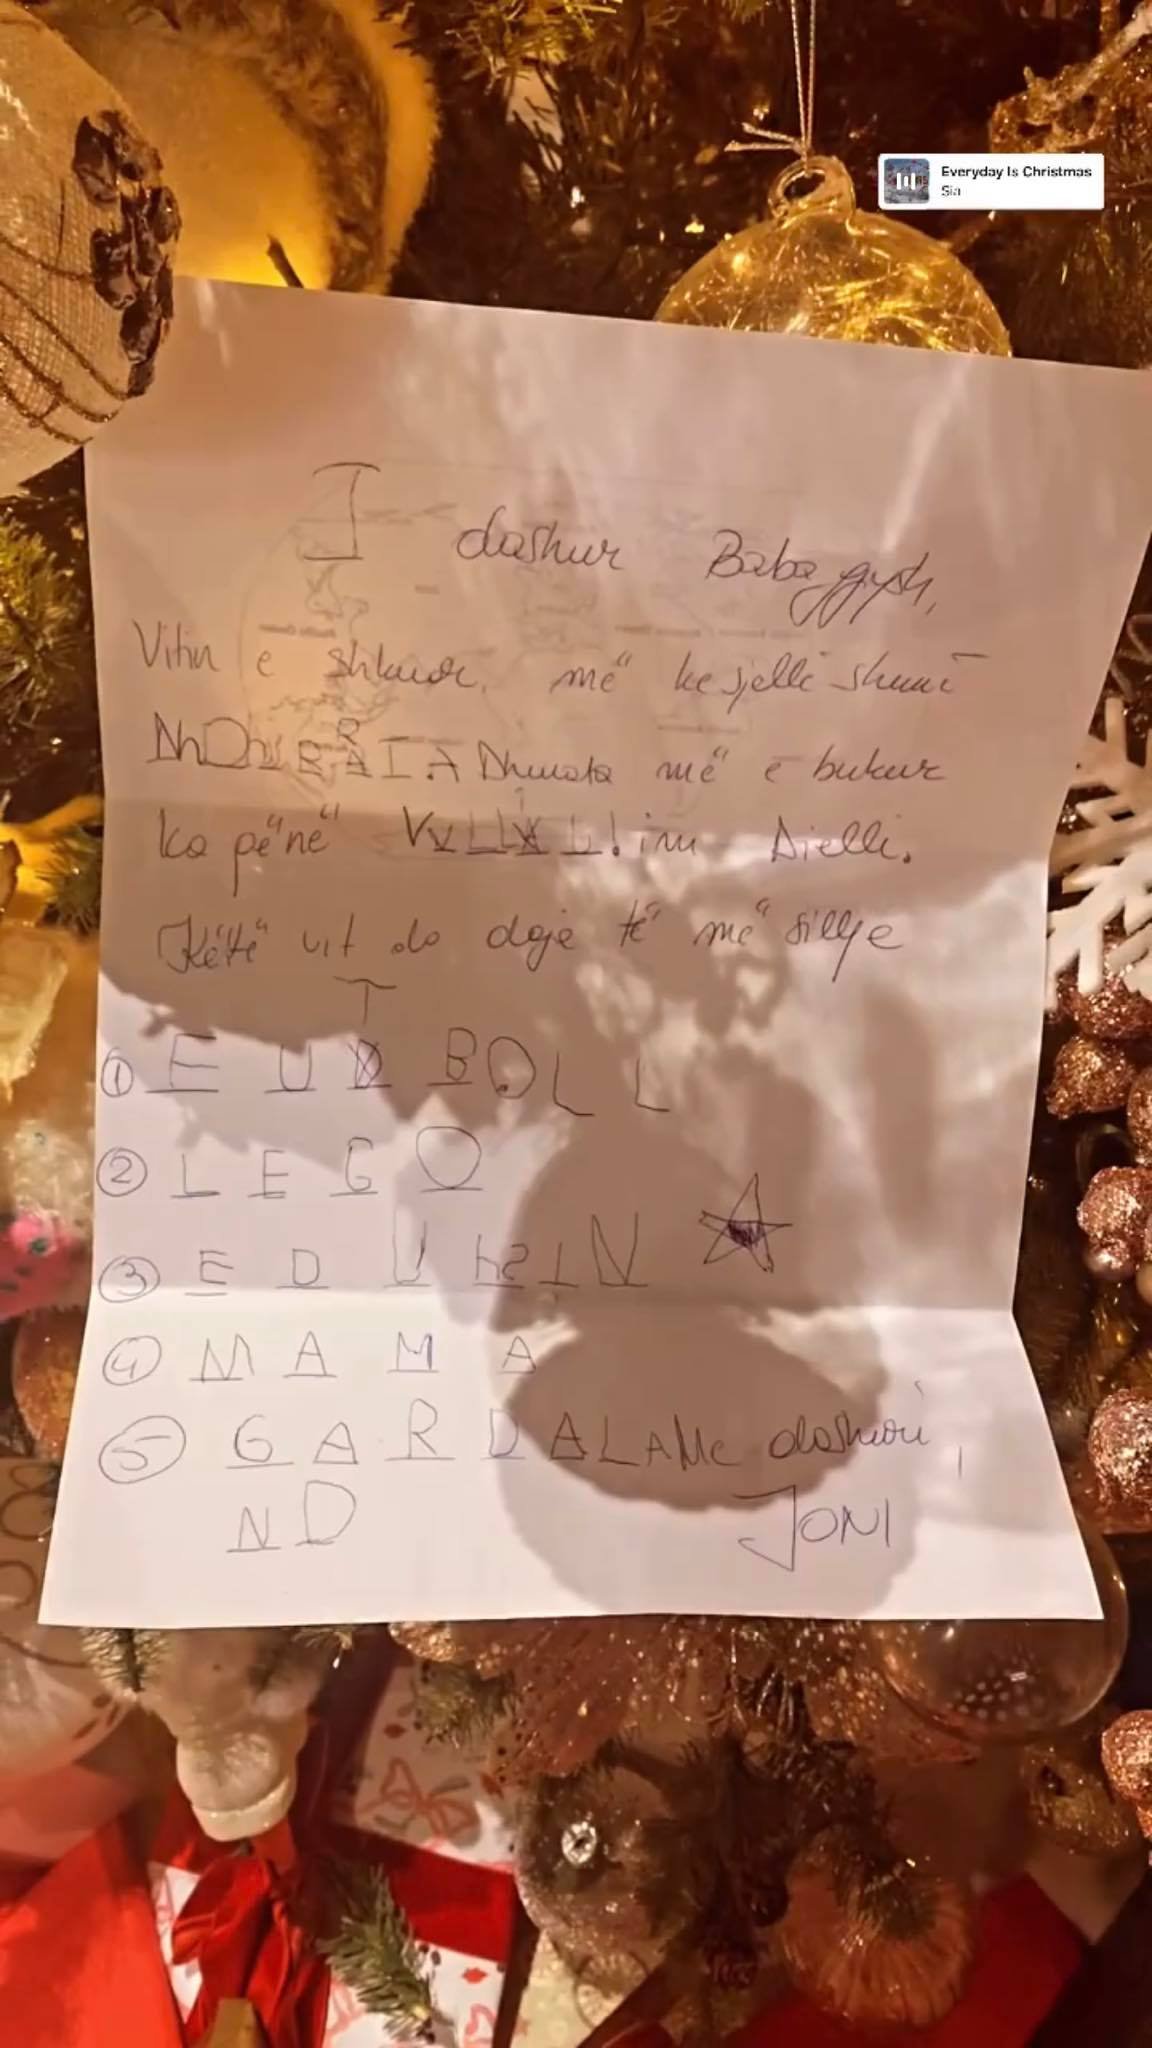 Everyday Is Christmas
Sia
I dashur Babagjysh,
Vitin e shkuar, më ke sjellë shumë
Dhurata më e bukur
ka qënë im Dielli.
Këtë vit do doja të më sillje
① F U T BOLL
② L E G O
③
④ M A M A
⑤ G A R D A L A Me dashuri,
N D JONI